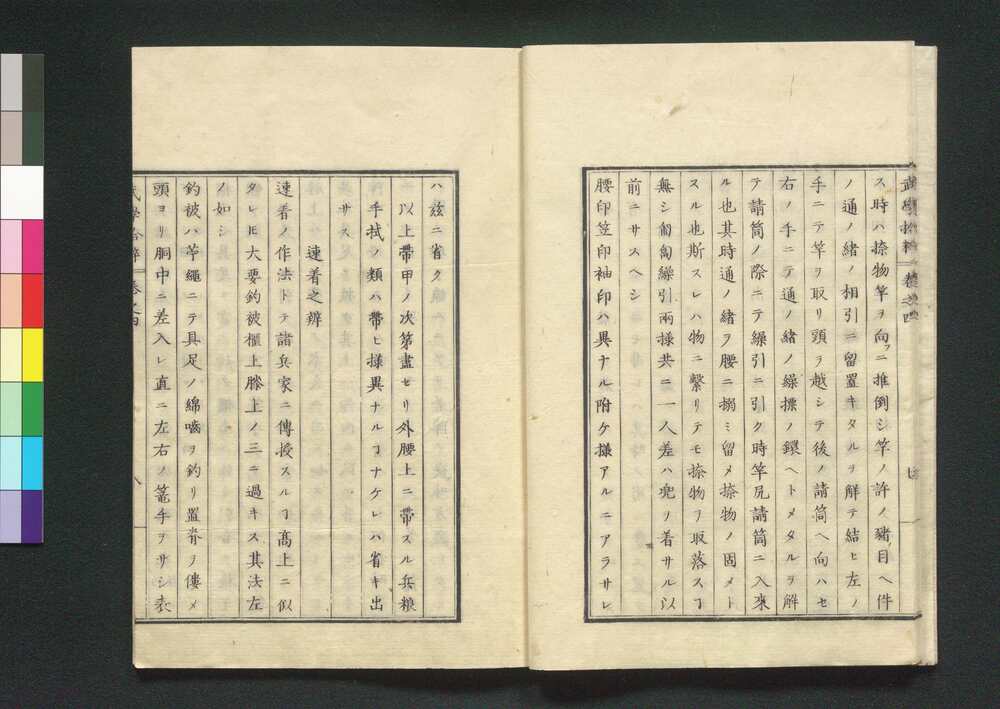 武學拾粹 卷之四
ス時ハ捺物竿ヲ向フニ推倒シ竿ノ許ノ豬目ヘ件
ノ通ノ緒ノ相引ニ留置キタルヲ解テ結ヒ左ノ
手ニテ竿ヲ取リ頭ヲ越シテ後ノ請筒ヘ向ハセ
右ノ手ニテ通ノ緒ノ繰摽ノ鐶ヘトメタルヲ解
テ請筒ノ際ニテ繰引ニ引ク時竿尻請筒ニ入來
ル也其時通ノ緒ヲ腰ニ搦ミ留メ捺物ノ固メト
スル也斯スレハ物ニ繋リテモ捺物ヲ取落スヿ
無シ匍匐繰引兩様共ニ一人差ハ兜ヲ着サル以
前ニサスヘシ
腰印笠印袖印ハ異ナル附ケ様アルニアラサレ
ハ茲ニ省ク
以上帶甲ノ次第盡セリ外腰上ニ帶スル兵粮
手拭ノ類ハ帶ヒ様異ナルヿナケレハ省キ出
サス
速着之辨
速着ノ作法トテ諸兵家ニ傳授スルヿ髙上ニ似
タレ𪜈大要釣被櫃上膝上ノ三ニ過キス其法左
ノ如シ
釣被ハ苧繩ニテ具足ノ綿嚙ヲ釣リ置脊ヲ僂メ
頭ヨリ胴中ニ差入レ直ニ左右ノ篭手ヲサシ表
八